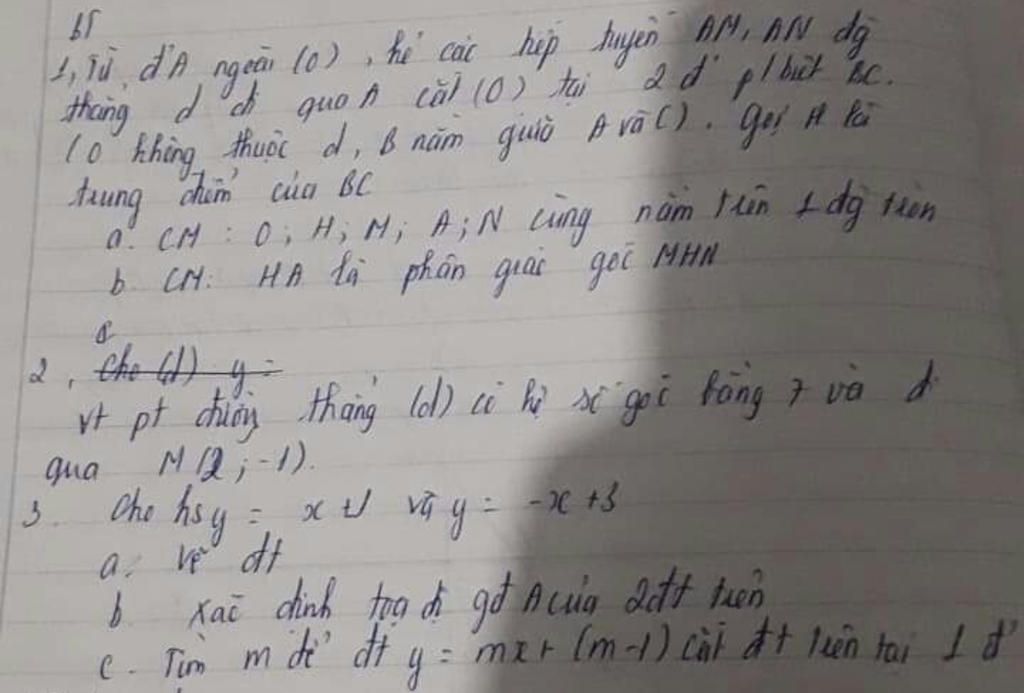 BT
1, Từ đ' A ngoài (O), kẻ các tiếp tuyến AM, AN đg
thẳng d đi qua A cắt (O) tại 2 đ' p/biệt BC.
(O không thuộc d, B nằm giữa A và C). Gọi H là
trung điểm của BC
a. CM : O; H; M; A; N cùng nằm trên 1 đg tròn
b. CM: HA là phân giác góc MHN
2, Cho (d) y =
vt pt đường thẳng (d) có hệ số góc bằng 7 và đi
qua M(2;-1).
3. Cho hs y = x+1 và y = -x+3
a. Vẽ đt
b Xác định tọa độ gđ A của 2đt trên
c. Tìm m để đt y = mx+ (m-1) cắt đt trên tại 1 đ'